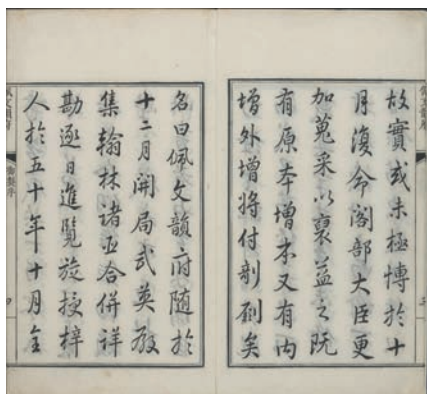 故實或未極博於十
月復命閣部大臣更
加蒐采以裒益之既
有原本增本又有內
增外增將付剞劂矣
名曰佩文韻府隨於
十二月開局武英殿
集翰林諸臣合併詳
勘逐日進覽旋授梓
人於五十年十月全